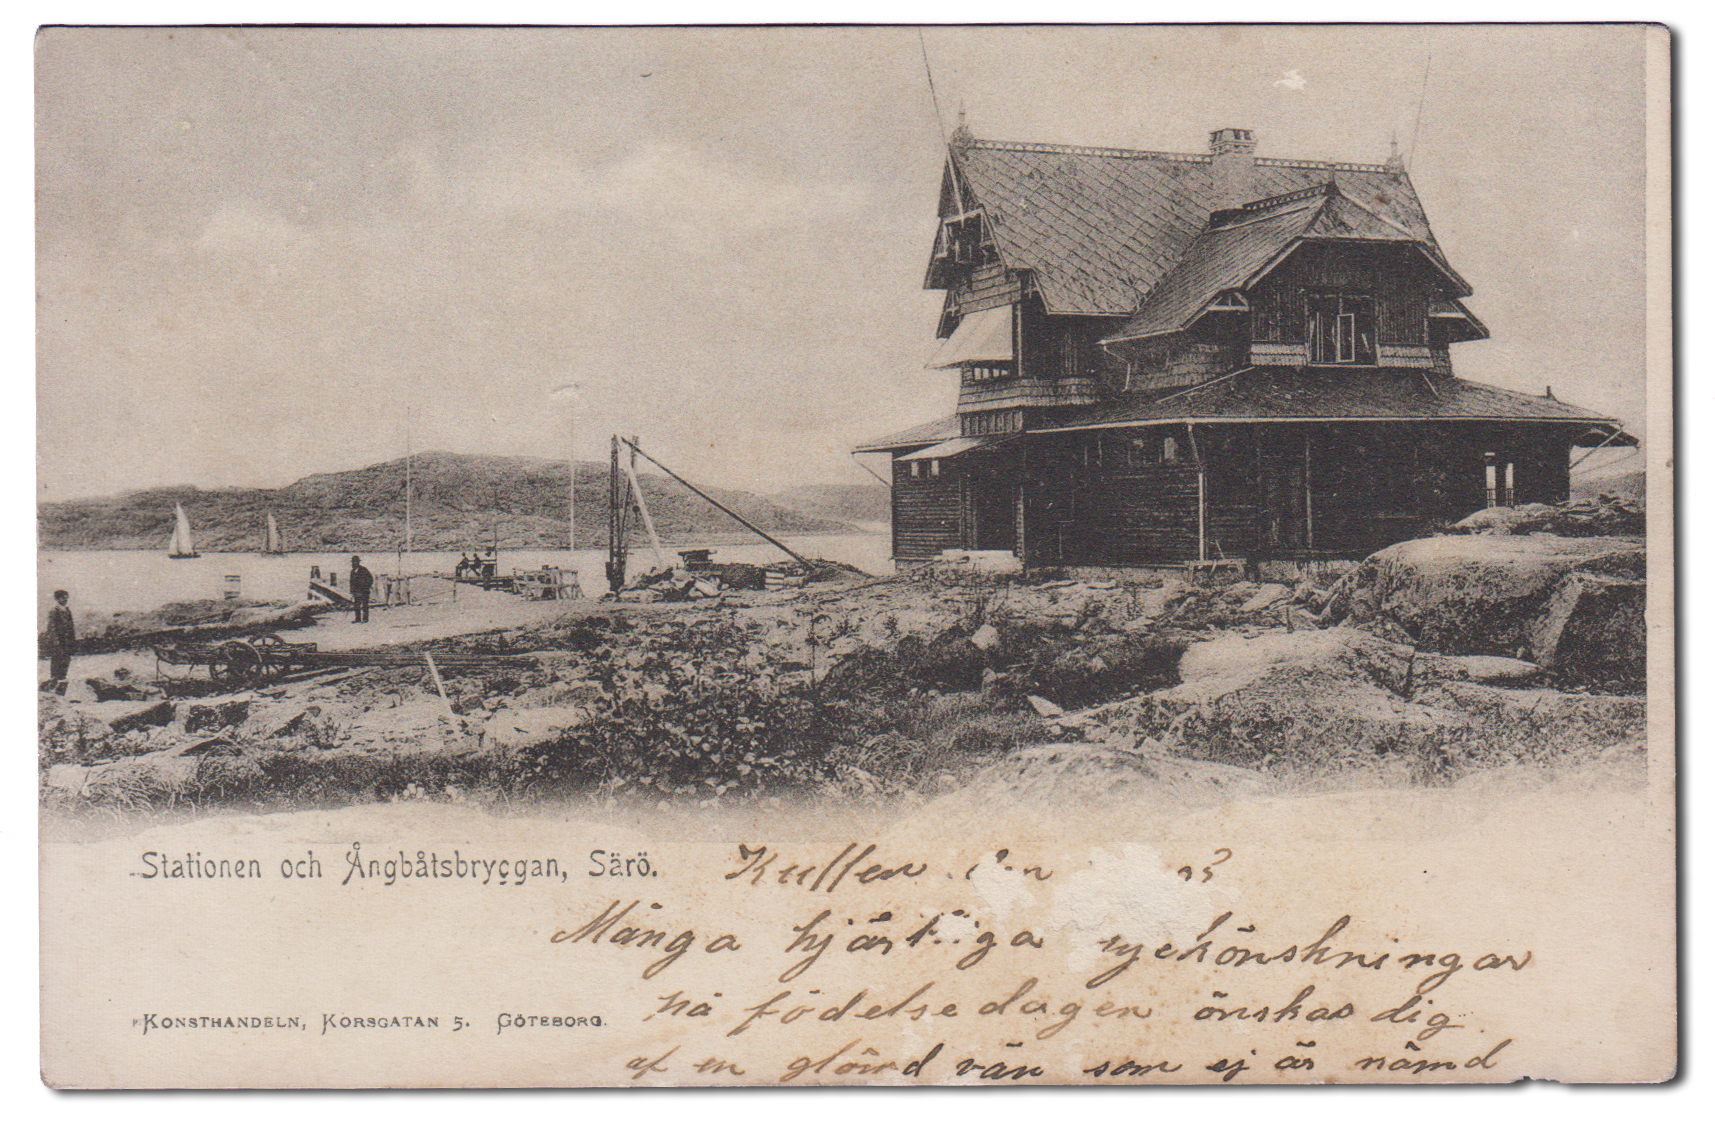 Stationen och Ångbåtsbryggan, Särö.
Kullen
Många hjärtliga lyckönskningar
på födelsedagen önskas dig
af en glömd vän som ej är nämd
KONSTHANDELN, KORSGATAN 5. GÖTEBORG.